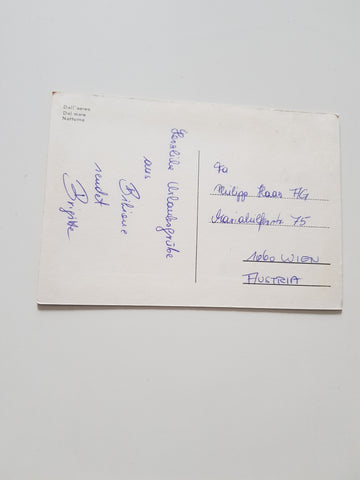 Dall'aereo
Dal mare
Notturno
Herzliche Urlaubsgrüße
aus
Bibione
sendet
Brigitte
Fa
Philipp Haas AG
Mariahilferstr. 75
1060 WIEN
AUSTRIA